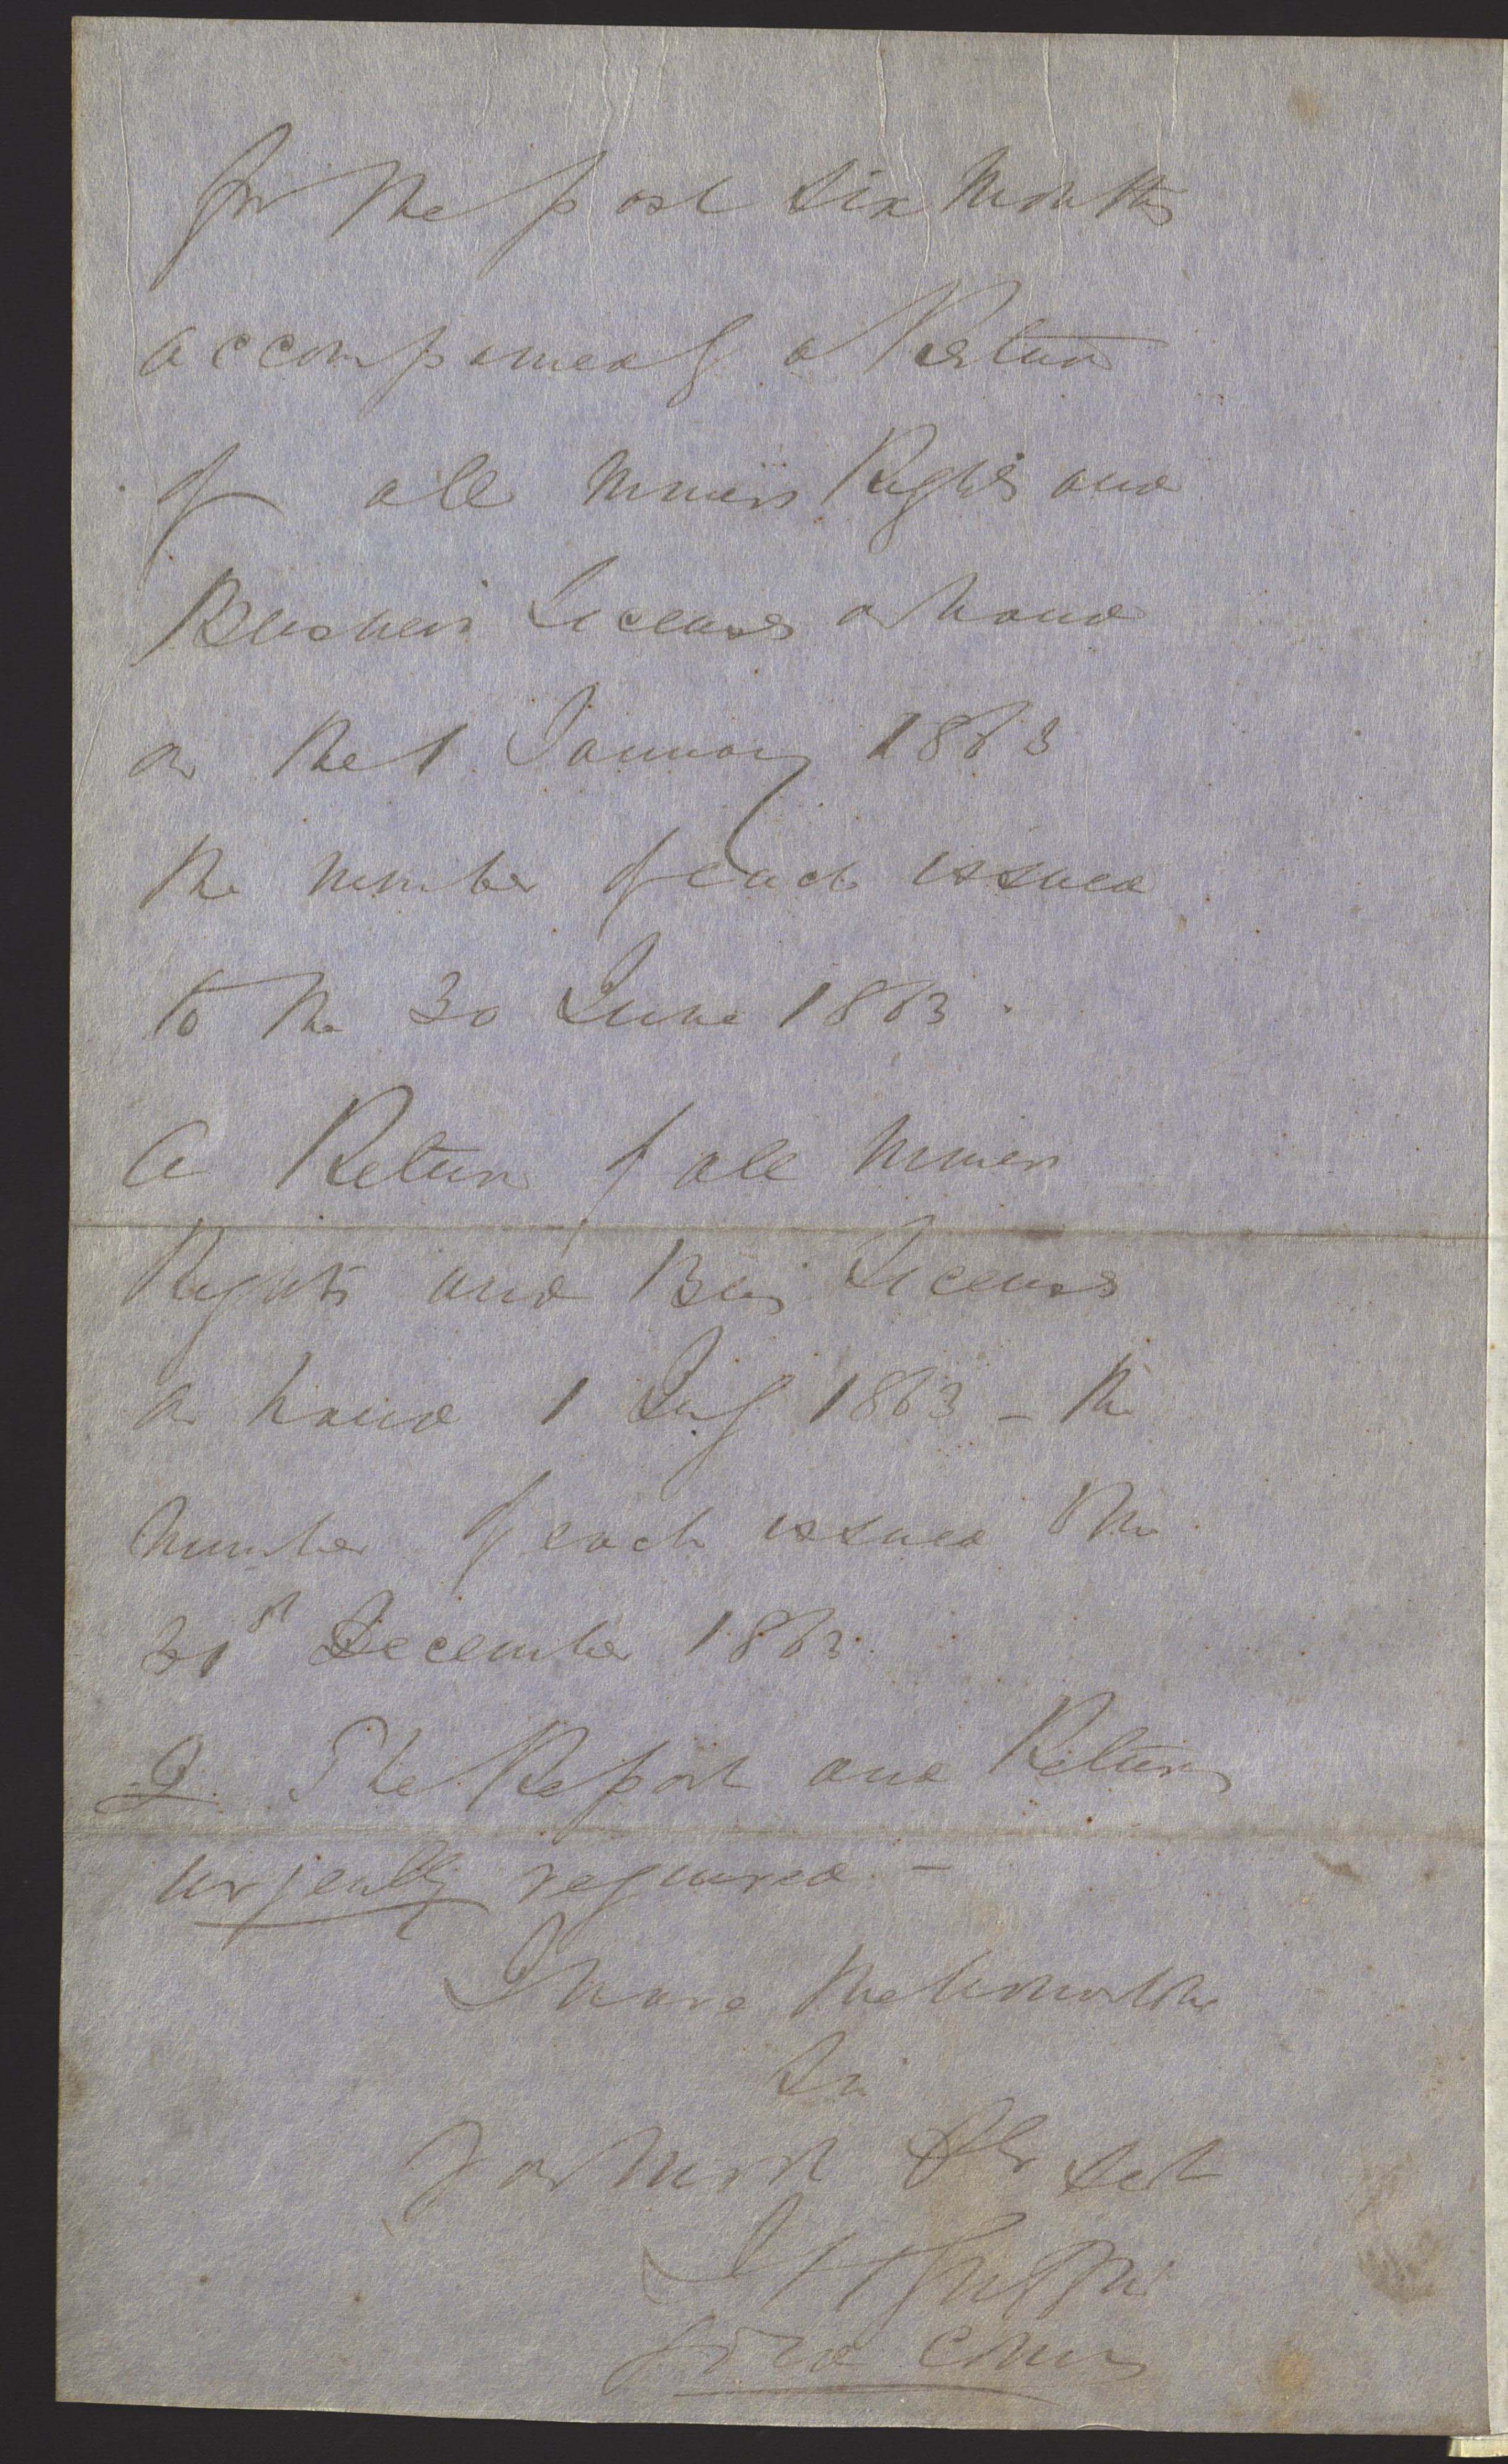 for the past six months
accompanied by a Return
of all Miners Rights and
Business Licenses on hand
on the 1 January 1863
the number of each issued
to the 30 June 1863.
A Return of all Miners
Rights and Bus Licenses
on hand 1 July 1863 - the
number of each issued to the
31st December 1863.
2. The Report and Returns
urgently required. -
I have the honor to be
Sir
Your most Obt Sert
Gold Comr